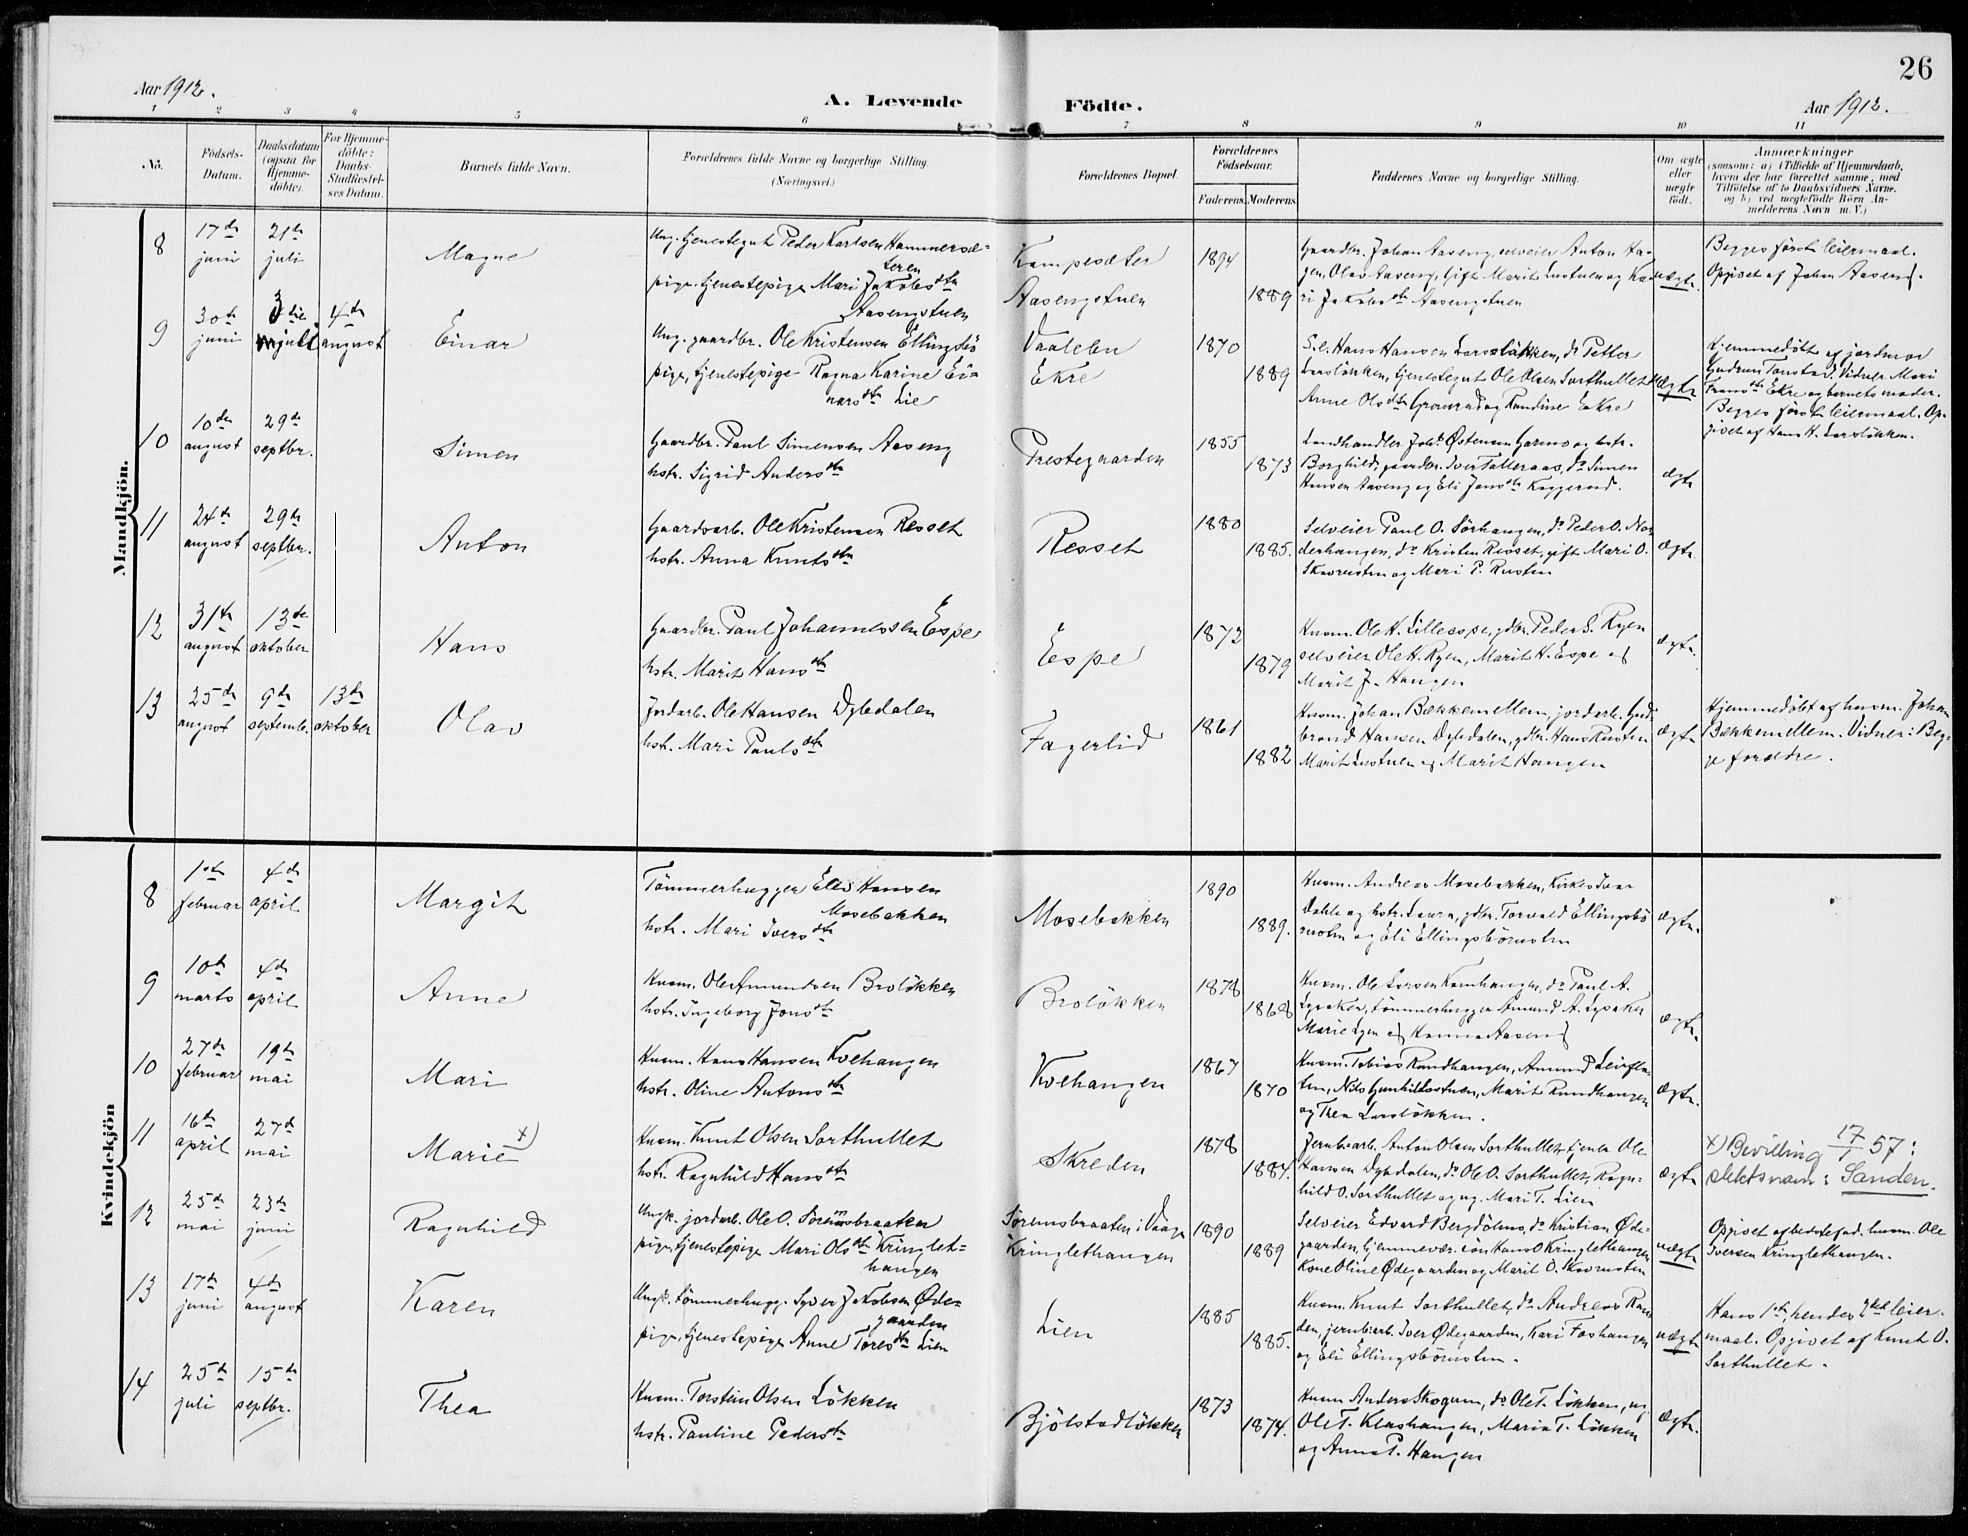 26
Aar 1912.
A. Levende
Födte.
Aar 1912.
1 2 3 4 5 6 7 8 9 10 11
No.
Födsels-
Datum.
Daabsdatum
(ogsaa for
Hjemme-
döbte).
For Hjemme-
döbte:
Daabs-
Stadfæstel-
ses Datum.
Barnets fulde Navn.
Forældrenes fulde Navne og borgerlige Stilling.
(Næringsvei.)
Forældrenes Bopæl.
Forældrenes
Födselsaar.
Faderens. Moderens.
Faddernes Navne og borgerlige Stilling.
Om ægte
eller
uægte
födt.
Anmærkninger
(saasom: a) i Tilfælde af Hjemmedaab,
hvem der har forrettet samme, med
Tilföielse af to Daabsvidners Navne.
og b) ved uægtefödte Börn An-
melderens Navn m. V.)
Mandkjön.
8
17de juni
21de juli
Magne
Ung. tjenestegut Peder Karlsen Hammersæ-
teren
pige, tjenestepige Mari Jakobsdtr
Aasengstuen
Kampesæter
Aasengstuen
1894
1889
Gaardbr. Johan Aaseng, selveier Anton Aa-
gen, Olav Aaseng, Gift Marit Lustuen og Ka-
ri Jakobsdtr Aasengstuen
uægte
Begges første leiermaal.
Opgivet af Johan Aaseng.
9
30te juni
3die juli
4de august
Einar
Ung. gaardbr. Ole Kristensen Ellingsbö
pige, tjenestepige Ragna Karine Ei-
narsdtr Lie
Vaalebu
Ekre
1870
1889
S.e. Hans Hansen Larsløkken, do Petter
Larsløkken, tjenestegut Ole Olsen Sorthullet
Anne Olsdtr Gronrud og Randine Ekre
uægte
Hjemmedøbt af jordmor
Gudrun Tonstad. Vidner Mari
Fransdtr Ekre og barnets moder.
Begges første leiermaal. Op-
givet af Hans H. Larsløkken.
10
10de august
29de septbr.
Simen
Gaardbr. Paul Simensen Aaseng
hstr. Sigrid Andersdtr
Prestegaarden
1855
1873
Landhandler Johs. Østensen Garmo og hstr.
Borghild, gaardbr. Iver Tolleraas, do Simen
Hansen Aaseng og Eli Jansdtr Kroggerud.
ægte
11
24de august
29de septbr.
Anton
Gaardarb. Ole Kristensen Resset
hstr. Anna Knutsdtr
Resset
1880
1885.
Selveier Paul O. Sørhangen, do Peder O. Nor-
derhangen, do Kristen Resset, gift Mari O.
Skavrusten og Mari P. Rusten
ægte
12
31te august
13de oktober
Hans
Gaardbr. Paul Johannessen Espe
hstr. Marit Hansdtr
Espe
1872
1879
Husm. Ole H. Lilleespe, gdbr. Peder S. Ryen
selveier Ole H. Ryen, Marit H. Espe og
Marit J. Hangen
ægte
13
25de august
9de septembr.
13de oktober
Olav
Jordarb. Ole Hansen Dybdalen
hstr. Mari Paulsdtr
Fagerlid
1861
1882
Husm. Johan Bækkemellem, jordarb. Gud-
brand Hansen Dybdalen, gdbr. Hans Rusten
Marit Lustuen og Marit Hangen
ægte
Hjemmedøbt af husm. Johan
Bækkemellem. Vidner: Beg-
ge forældre.
Kvindekjön
8
1ste februar
4de april
Margit
Tømmerhugger Ellev Hansen
Mosebakken
hstr. Mari Iversdtr
Mosebakken
1890
1889.
Husm. Andreas Mosebakken, Kirkes. Ivar
Dahle og hstr. Laura, gdbr. Torvald Ellingsbö
rusten og Eli Ellingsbörusten
ægte.
9
10de marts
4de april
Anne
Husm. Ole Amundsen Broløkken
hstr. Ingeborg Jonsdtr
Broløkken
1878
1868
Husm. Ole Larsen Kamhangen, do Paul A.
Lysaker, tømmerhugger Amund A. Lysaker
Marie Lyen og Hanna Aaseng
ægte.
10
27de februar
19de mai
Mari
Husm. Hans Hansen Kvehangen
hstr. Oline Antonsdtr
Kvehangen
1867
1870
Husm. Tobias Rundhangen, Amund Leirfla-
ten, Nils Gunhildsstuen, Marit Rundhangen
og Thea Larsløkken.
ægte.
11
16de april
27de mai
Marie x)
Husm. Knut Olsen Sorthullet
hstr. Ragnhild Hansdtr
Skreden
1878
1884.
Jernbarb. Anton Olsen Sorthullet, tjener Ole
Hansen Dybdalen, do Ole O. Sorthullet, Ragn-
hild O. Sorthullet og ug. Mari T. Lien
ægte
x) Bevilling 17/1 57:
slektsnavn: Sanden.
12
25de mai
23de juni
Ragnhild
Ungk. jordarb. Ole O. Sørumsbraaten
pige, tjenestepige Mari Olsdtr Kringlet-
hangen
Sørumsbraaten i Vaage
Kringlethangen
1890
1889
Selveier Edvard Bergdølmo, do Kristian Øde-
gaarden, hjemmevær. sön Hans O Kringlethangen
Kone Oline Ødegaarden og Marit O. Skavrusten
uægte
Opgivet af bedstefad. husm. Ole
Iversen Kringlethangen.
13
17de juni
4de august
Karen
Ungk. tømmerhugg. Syver Jakobsen Øde-
gaarden
pige, tjenestepige Anne Toresdtr Lien
Lien
1885
1885.
Husm. Knut Sorthullet, do Andreas Ran-
den, jernbarb. Iver Ødegaarden, Kari Foshangen
og Eli Ellingsbörusten.
uægte
Hans 1ste, hendes 2det leier-
maal. Opgivet af Knut O.
Sorthullet.
14
25de juli
15de septbr.
Thea
Husm. Torstein Olsen Løkken
hstr. Pauline Pedersdtr
Bjölstadløkken
1873
1874.
Husm Anders Skogum, do Ole T. Løkken, ug.
Ole T. Klashangen, Marie T. Løkken
og Anna P. Hangen
ægte.